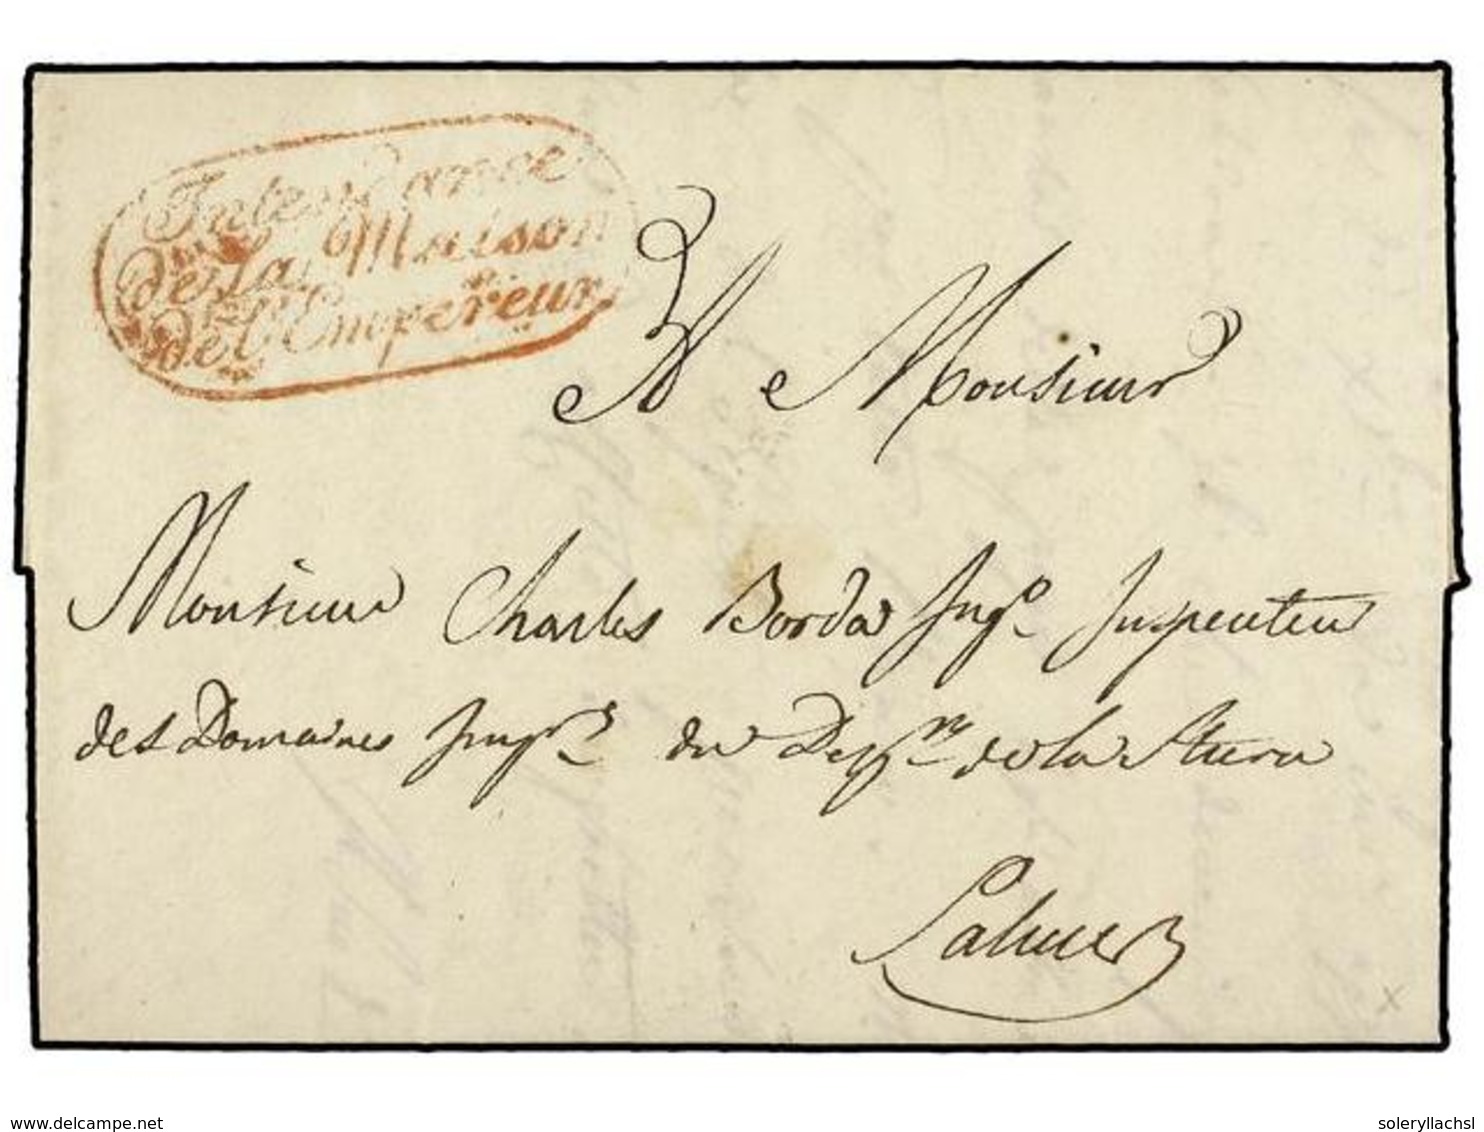 Intendance
de la Maison
de l'Empereur
A Monsieur
Monsieur Charles Borda Ingr Inspecteur
des Domaines du Depm de la Stura
delcampe.net
soleryllachsl